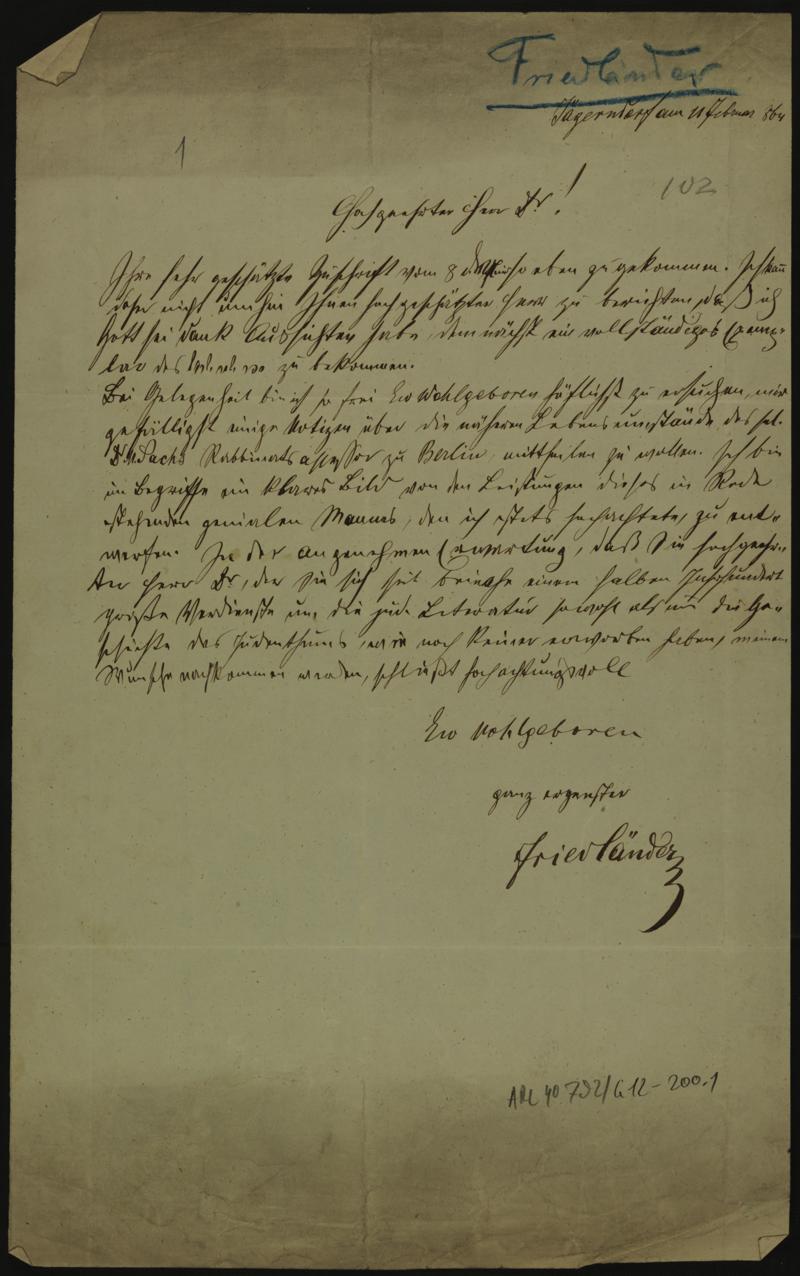 Friedländer
Jägerndorf am 11 Februar 864
1
102
Hochgeehrter Herr Dr!
Ihre sehr geschätzte Zuschrift vom 8 d M. mir so eben zugekommen. Ich kann
daher nicht umhin Ihnen hochgeschätzter Herr zu berichten, daß ich
Gott sei Dank Aussichten habe, demnächst ein vollständiges Exemp-
lar des zu bekommen.
Bei Gelegenheit bin ich so frei Ew Wohlgeboren höflichst zu ersuchen, mir
gefälligst einige Notizen über die nähern Lebensumstände des sel.
Dr. M Sachs Rabbinatsassessor zu Berlin, mittheilen zu wollen. Ich bin
im Begriffe ein klares Bild von den Leistungen dieses in Rede
stehenden genialen Mannes, den ich stets hochachtete, zu ent-
werfen. In der angenehmen Erwartung, daß Sie hochgeehr-
ter Herr Dr, der Sie sich seit beinahe einem halben Jahrhundert
große Verdienste um die jüd. Literatur sowohl als um die Ge-
schichte des Judenthums, wie noch keiner erworben haben, meinem
Wunsche nachkommen werden, schließt hochachtungsvoll
Ew Wohlgeboren
ganz ergebenster
Friedländer
ARC 4° 792/G12-200.1